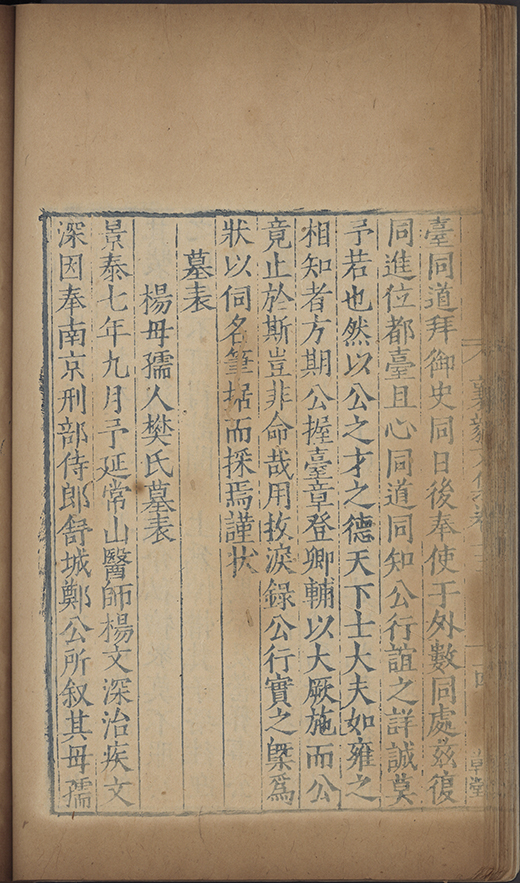 臺同道拜御史同日後奉使于外數同處茲復
同進位都臺且心同道同知公行誼之詳誠莫
予若也然以公之才之德天下士大夫如雍之
相知者方期公握臺章登卿輔以大厥施而公
竟止於斯豈非命哉用抆淚錄公行實之槩為
狀以伺名筆据而採焉謹状
墓表
楊母孺人樊氏墓表
景泰七年九月予延常山醫師楊文深治疾文
深因奉南京刑部侍郎舒城鄭公所叙其母孺